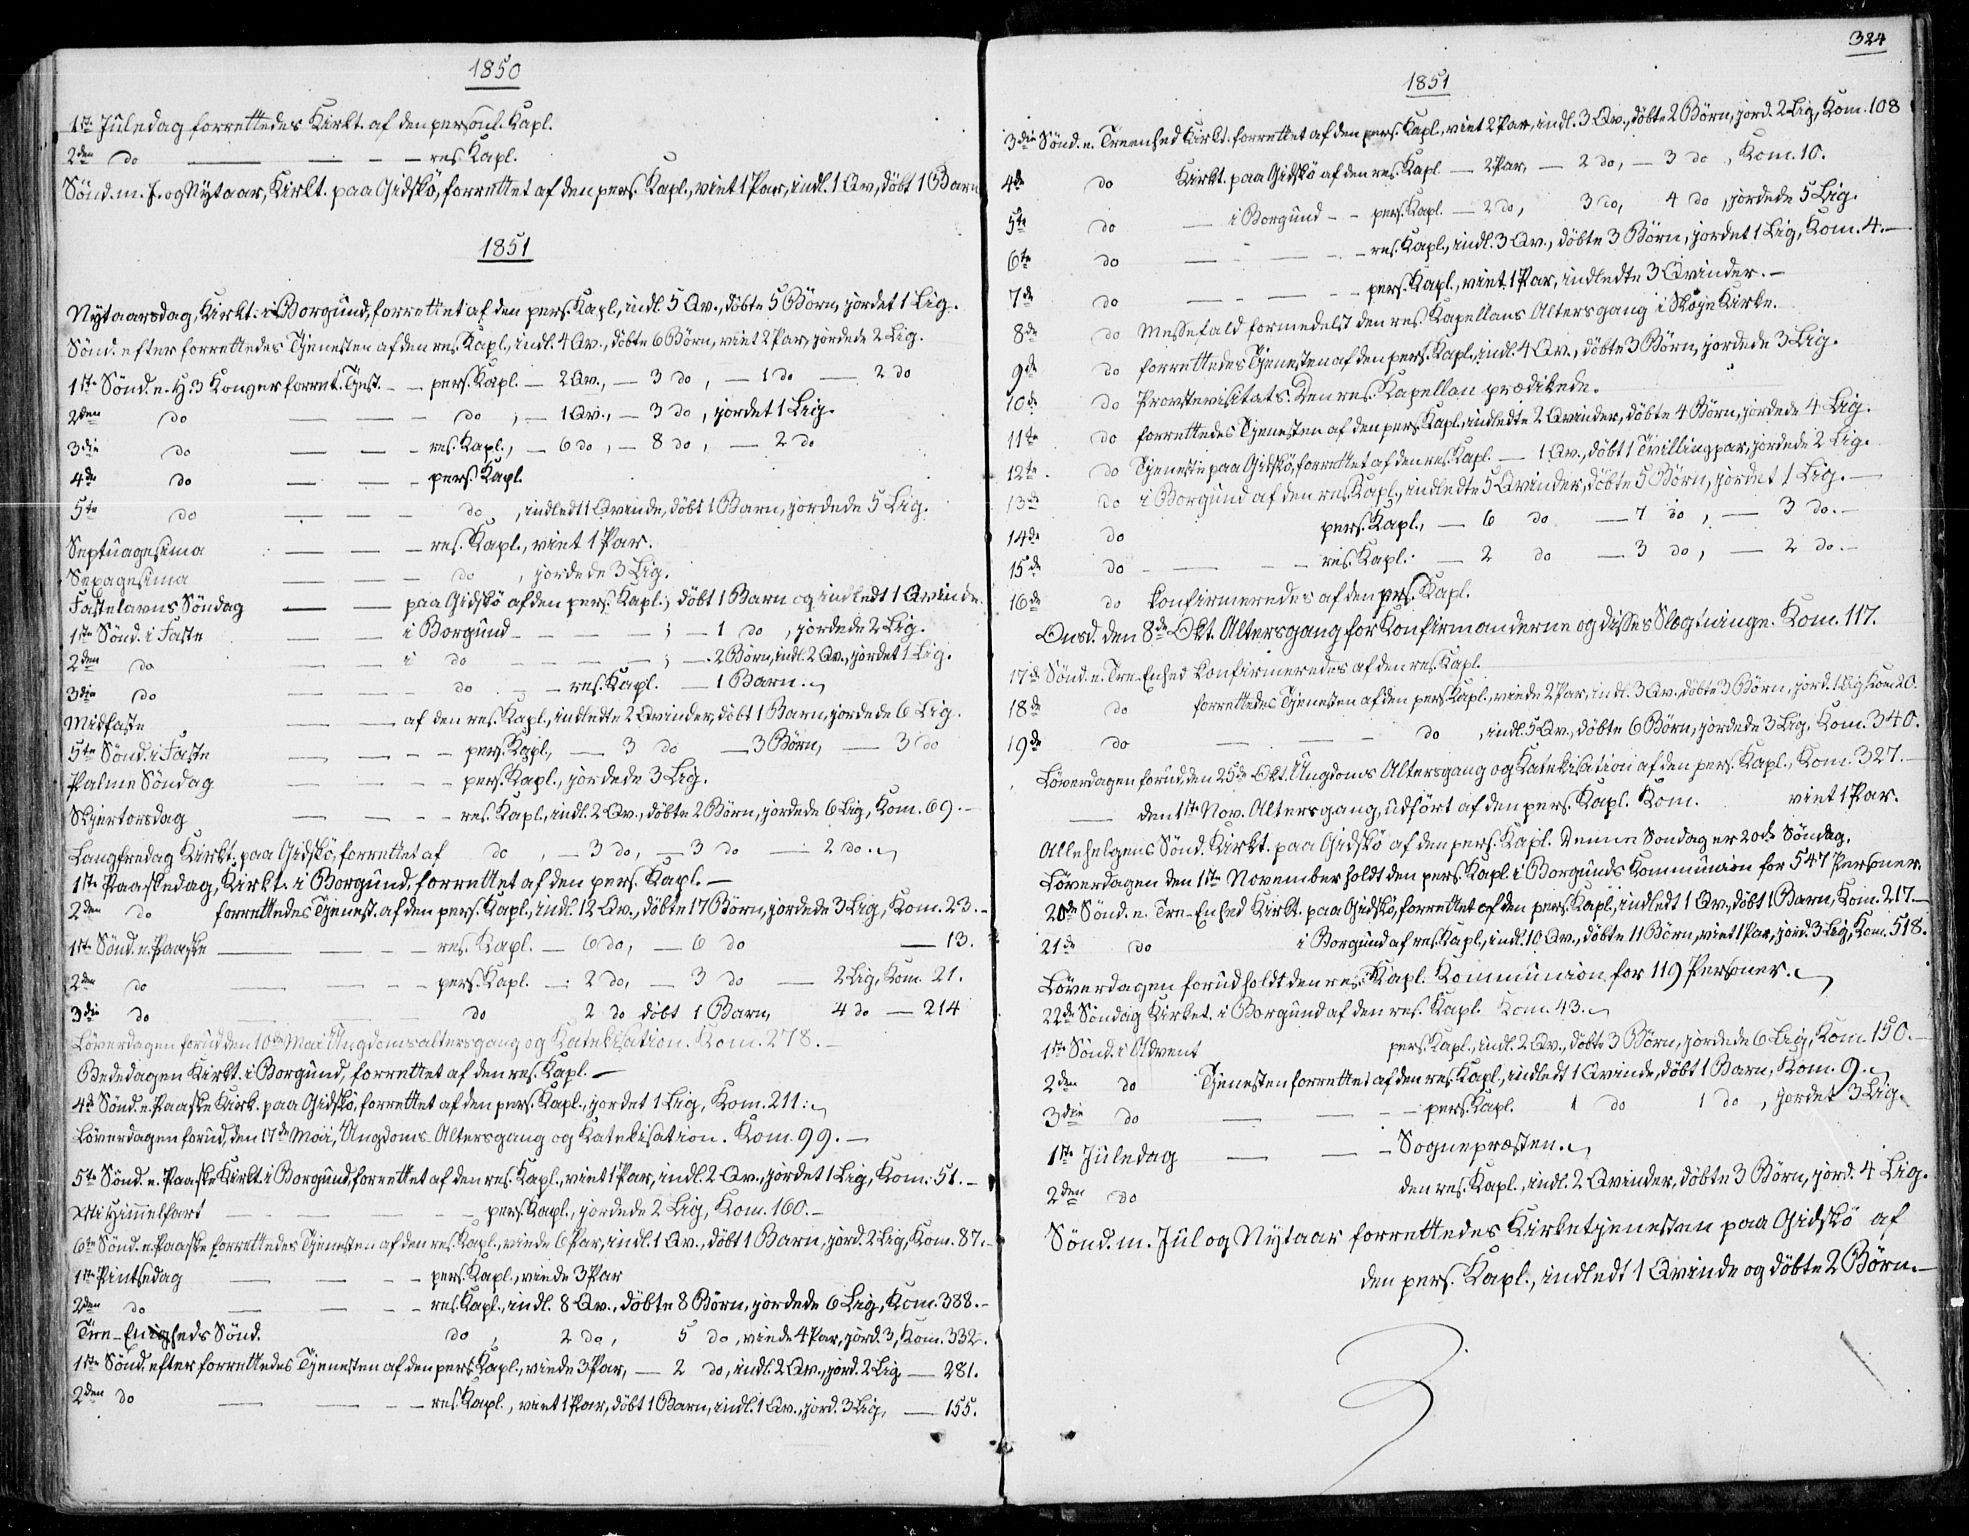 1850
1ste Juledag forrettedes Kirkt. af den personl. Kapl.
2den do — — — — res. Kapl.
Sönd. m. J. og Nytaar, Kirkt. paa Gidskö, forrettet af den pers. Kapl., viet 1 Par, indl. 1 Qv., döbt 1 Barn
1851
Nytaarsdag, Kirkt. i Borgund, forrettet af den pers. Kapl., indl. 5 Qv., döbte 5 Börn, jordet 1 Lig.
Sönd. efter forrettedes Tjenesten af den res. Kapl., indl. 4 Qv., döbte 6 Börn, viet 2 Par, jordede 2 Lig.
1ste Sönd. e. H. 3 Konger forret. Tjest. — — pers. Kapl. — 2 Qv., — 3 do, — 1 do — 2 do
2den do — — — do, — 1 Qv., — 3 do, jordet 1 Lig.
3die do — — — res. Kapl., — 6 do, — 8 do, — 2 do
4de do — — — pers. Kapl.
5te do — — — do, indledt 1 Qvinde, döbt 1 Barn, jordede 5 Lig.
Septuagesima — — — res. Kapl., viet 1 Par.
Sexagesima — — — do, jordede 3 Lig.
Fastelavns Söndag — — paa Gidskö af den pers. Kapl.; döbt 1 Barn og indledt 1 Qvinde.
1ste Sönd. i Faste — — i Borgund — — — — ; — 1 do, jordede 2 Lig.
2den do — — i do — — — — ; — 2 Börn, indl. 2 Qv., jordet 1 Lig.
3die do — — — do — — res. Kapl. — 1 Barn.
Midfaste — — af den res. Kapl., indledte 2 Qvinder, döbt 1 Barn, jordede 6 Lig.
5te Sönd. i Faste — — — — pers. Kapl., — 3 do — 3 Börn, — 3 do
Palme Söndag — — — — pers. Kapl., jordede 3 Lig.
Skjertorsdag — — — — res. Kapl., indl. 2 Qv., döbte 2 Börn, jordede 6 Lig, Kom. 69. —
Langfredag Kirkt. paa Gidskö, forrettet af do, — 3 do, — 3 do — 2 do.
1ste Paaskedag, Kirkt. i Borgund, forrettet af den pers. Kapl. —
2den do forrettedes Tjenest. af den pers. Kapl., indl. 12 Qv., döbte 17 Börn, jordede 3 Lig, Kom. 23. —
1ste Sönd. e. Paaske — — — — res. Kapl. — 6 do, — 6 do — 13.
2den do — — — — pers. Kapl. — 2 do, — 3 do — 2 Lig, Kom. 21.
3die do — — — do 2 do döbt 1 Barn, 4 do — 214
Löverdagen forud den 10de Mai Ungdomsaltersgang og Katekisation. Kom. 278. —
Bededagen Kirkt. i Borgund, forrettet af den res. Kapl. —
4de Sönd. e. Paaske Kirk. paa Gidskö, forrettet af den pers. Kapl., jordet 1 Lig, Kom. 211.
Löverdagen forud, den 17de Mai, Ungdoms-Altersgang og Katekisation. Kom. 99. —
5te Sönd. e. Paaske Kirkt. i Borgund, forrettet af den res. Kapl., viet 1 Par, indl. 2 Qv., jordet 1 Lig, Kom. 51. —
Xti Himmelfart — — — — pers. Kapl., jordede 2 Lig, Kom. 160. —
6te Sönd. e. Paaske forrettedes Tjenesten af den res. Kapl., viede 6 Par, indl. 1 Qv., döbt 1 Barn, jord. 2 Lig, Kom. 87. —
1ste Pintsedag — — — — pers. Kapl., viede 3 Par
2den do — — — — res. Kapl., indl. 8 Qv., döbte 8 Börn, jordede 6 Lig, Kom. 388. —
Tre-Enigheds Sönd. do, 2 do, 5 do, viede 4 Par, jord. 3, Kom. 332.
1ste Sönd. efter forrettedes Tjenesten af den pers. Kapl., viede 3 Par, — 2 do, indl. 2 Qv., jord. 2 Lig — 281.
2den do — — — — res. Kapl., viet 1 Par, döbt 1 Barn, indl. 1 Qv., jord. 3 Lig, — 155.
324
1851
3die Sönd. e. Treenhed Kirkt. forrettet af den pers. Kapl., viet 2 Par, indl. 3 Qv., döbte 2 Börn, jord. 2 Lig, Kom. 108
4de do Kirkt. paa Gidskö af den res. Kapl. — 2 Par, — 2 do, — 3 do, Kom. 10.
5te do — i Borgund — — pers. Kapl. — 2 do, 3 do, 4 do, jordede 5 Lig.
6te do — — — — res. Kapl., indl. 3 Qv., döbte 3 Börn, jordet 1 Lig, Kom. 4. —
7de do — — — — pers. Kapl., viet 1 Par, indledte 3 Qvinder. —
8de do Messefald formedelst den res. Kapellans Altersgang i Skoje Kirke.
9de do forrettedes Tjenesten af den pers. Kapl., indl. 4 Qv., döbte 3 Börn, jordede 3 Lig.
10de do Provstevisitats. Den res. Kapellan prædikede.
11te do forrettedes Tjenesten af den pers. Kapl., indledte 2 Qvinder, döbte 4 Börn, jordede 4 Lig.
12te do Tjeneste paa Gidskö, forrettet af den res. Kapl. — 1 Qv., döbt 1 Tvillingpar, jordede 2 Lig.
13de do i Borgund af den res. Kapl., indledte 5 Qvinder, döbte 5 Börn, jordet 1 Lig. —
14de do pers. Kapl., — 6 do — 7 do, — 3 do. —
15de do — — — res. Kapl. — 2 do — 3 do, — 2 do. —
16de do konfirmeredes af den pers. Kapl.
Onsd. den 8de Okt. Altersgang for Konfirmanderne og disses Slægtninge. Kom. 117.
17de Sönd. e. Tre-Enhed konfirmeredes af den res. Kapl.
18de do forrettedes Tjenesten af den pers. Kapl., viede 2 Par, indl. 3 Qv., döbte 3 Börn, jord. 1 Lig, Kom. 20.
19de do — — — do, indl. 5 Qv., döbte 6 Börn, jordede 3 Lig, Kom. 340.
Löverdagen forud, den 25de Okt. Ungdoms Altersgang og Katekisation af den pers. Kapl., Kom. 327. —
— den 1ste Nov. Altersgang, udfört af den pers. Kapl. Kom. viet 1 Par.
Allehelgens Sönd. Kirkt. paa Gidskö af den pers. Kapl. Denne Söndag er 20de Söndag.
Löverdagen den 1ste November holdt den pers. Kapl. i Borgunds Kommunion for 547 Personer.
20de Sönd. e. Tre-Enhed Kirkt. paa Gidskö, forrettet af den pers. Kapl., indledt 1 Qv., döbt 1 Barn, Kom. 217. —
21de do i Borgund af res. Kapl., indl. 10 Qv., döbte 11 Börn, viet 1 Par, jord. 3 Lig, Kom. 518.
Löverdagen forud holdt den res. Kapl. Kommunion for 119 Personer.
22de Söndag Kirket. i Borgund af den res. Kapl. Kom. 43.
1ste Sönd. i Advent pers. Kapl., indl. 2 Qv., döbte 3 Börn, jordede 6 Lig, Kom. 150. —
2den do Tjenesten forrettet af den res. Kapl., indledt 1 Qvinde, döbt 1 Barn, Kom. 9.
3die do — — — — pers. Kapl. 1 do 1 do, jordet 3 Lig.
1ste Juledag — — — Sognepræsten.
2den do den res. Kapl., indl. 2 Qvinder, döbte 3 Börn, jord. 4 Lig.
Sönd. m. Jul og Nytaar forrettedes Kirketjenesten paa Gidskö af
den pers. Kapl., indledt 1 Qvinde og döbte 2 Börn. —